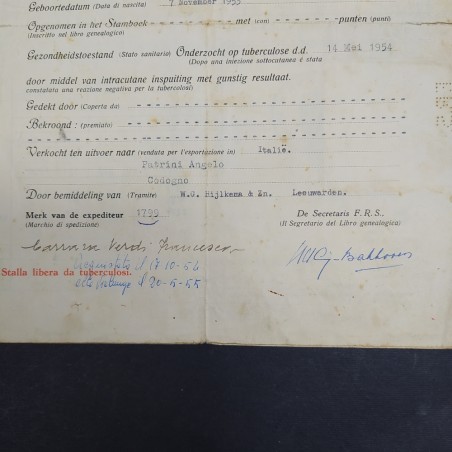 Geboortedatum (Data di nascita) 7 November 1953
Opgenomen in het Stamboek - met (con) - punten (punti)
(Inscritto nel libro genealogico)
Gezondheidstoestand (Stato sanitario) Onderzocht op tuberculose d.d. 14 Mei 1954
(Dopo una iniezione sottocutanea è stata
door middel van intracutane inspuiting met gunstig resultaat.
constatata una reazione negativa per la tuberculosi)
Gedekt door (Coperta da)
Bekroond : (premiato)
Verkocht ten uitvoer naar (venduta per l'esportazione in) Italië.
Patrini Angelo
Codogno
Door bemiddeling van (Tramite) W.G. Rijlkema & Zn. Leeuwarden.
Merk van de expediteur 1799
(Marchio di spedizione)
De Secretaris F. R. S.,
(Il Segretario del Libro genealogico)
Carrara Verdi Francesco
Acquistato il 17-10-54
Stalla libera da tuberculosi.
il 20-5-55